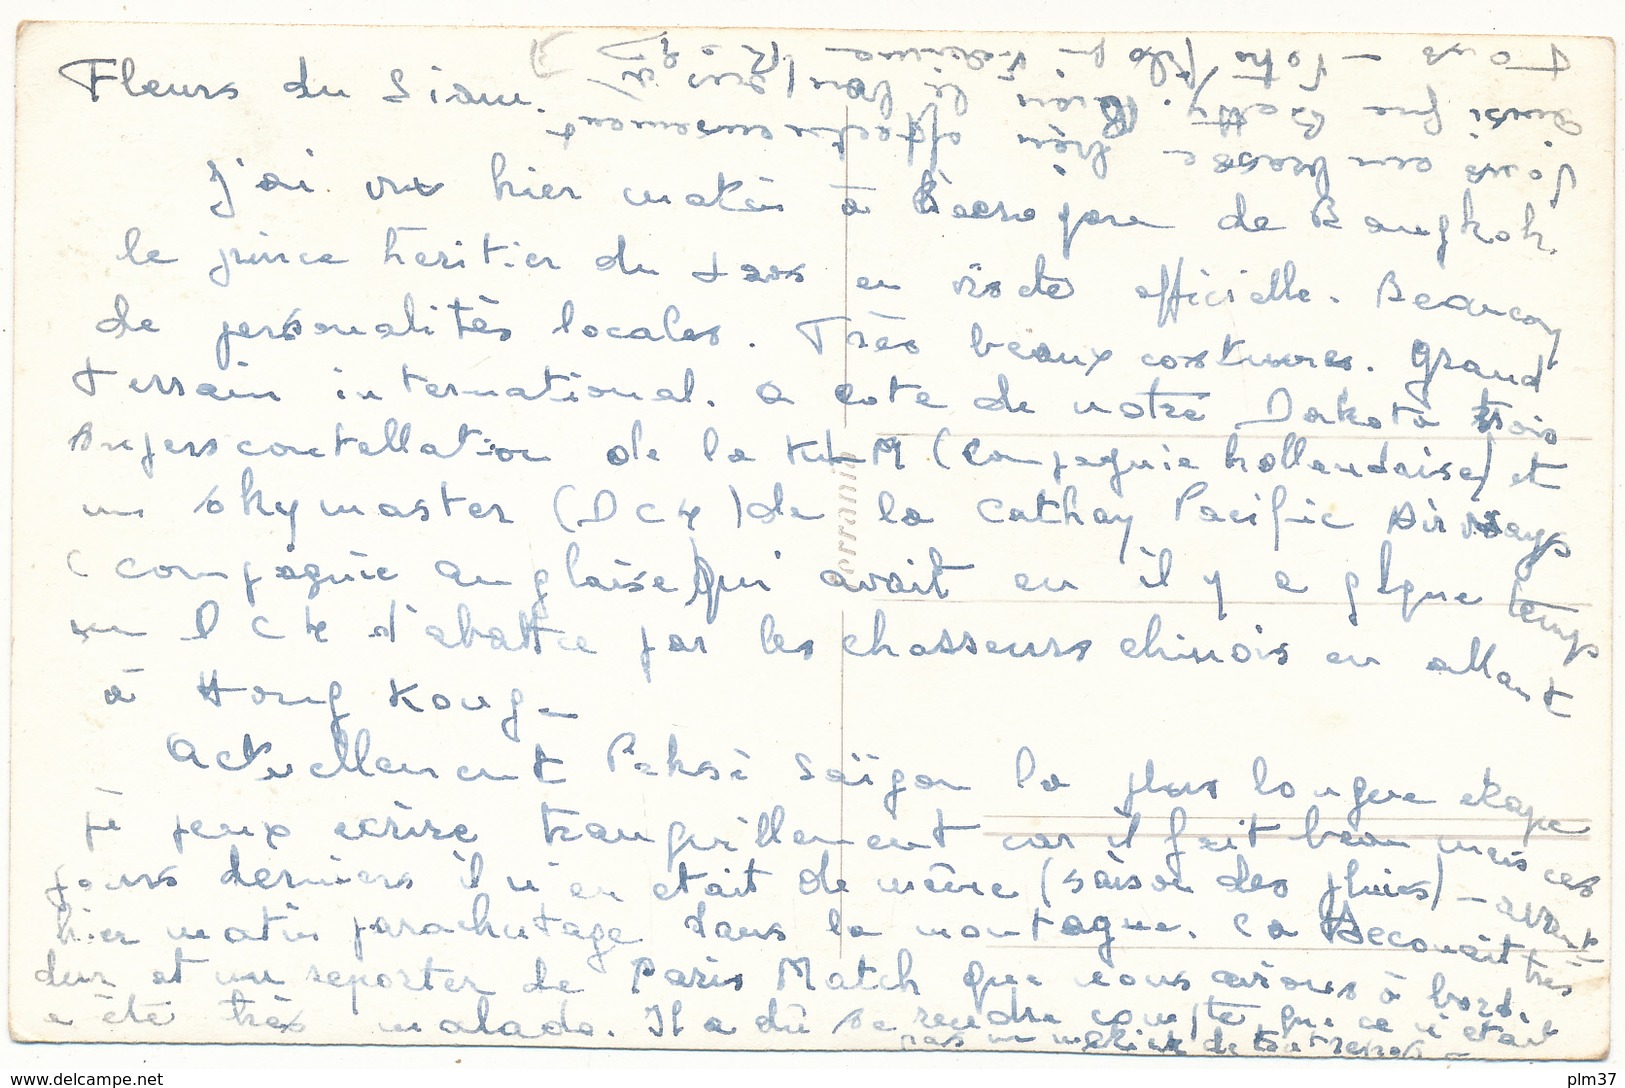 Fleurs du Siam.
J'ai vu hier matin à l'aerogare de Bangkok
le prince heritier du Laos en visite officielle. Beaucoup
de personalités locales. Très beaux costumes. Grand
terrain international. a coté de notre Dakota trois
superconstellation de la KLM (Compagnie hollandaise) et
un skymaster (DC4) de la Cathay Pacific Airways
(compagnie anglaise) qui avait eu il y a qlque temps
un DC4 d'abattu par les chasseurs chinois en allant
à Hong Kong –
Actuellement Paksé Saïgon la plus longue etape
je peux ecrire tranquillement car il fait beau mais ces
jours derniers il n'en etait de même (saison des pluies) – avant
hier matin parachutage dans la montagne. ca secouait très
dur et un reporter de Paris Match que nous avions à bord.
a été très malade. Il a dû se rendre compte que ce n'etait
pas un metier de tout repos –
vous embrasse bien affectueusement
ainsi que Betty.
Tous –
ferrania
www.delcampe.net
plm37